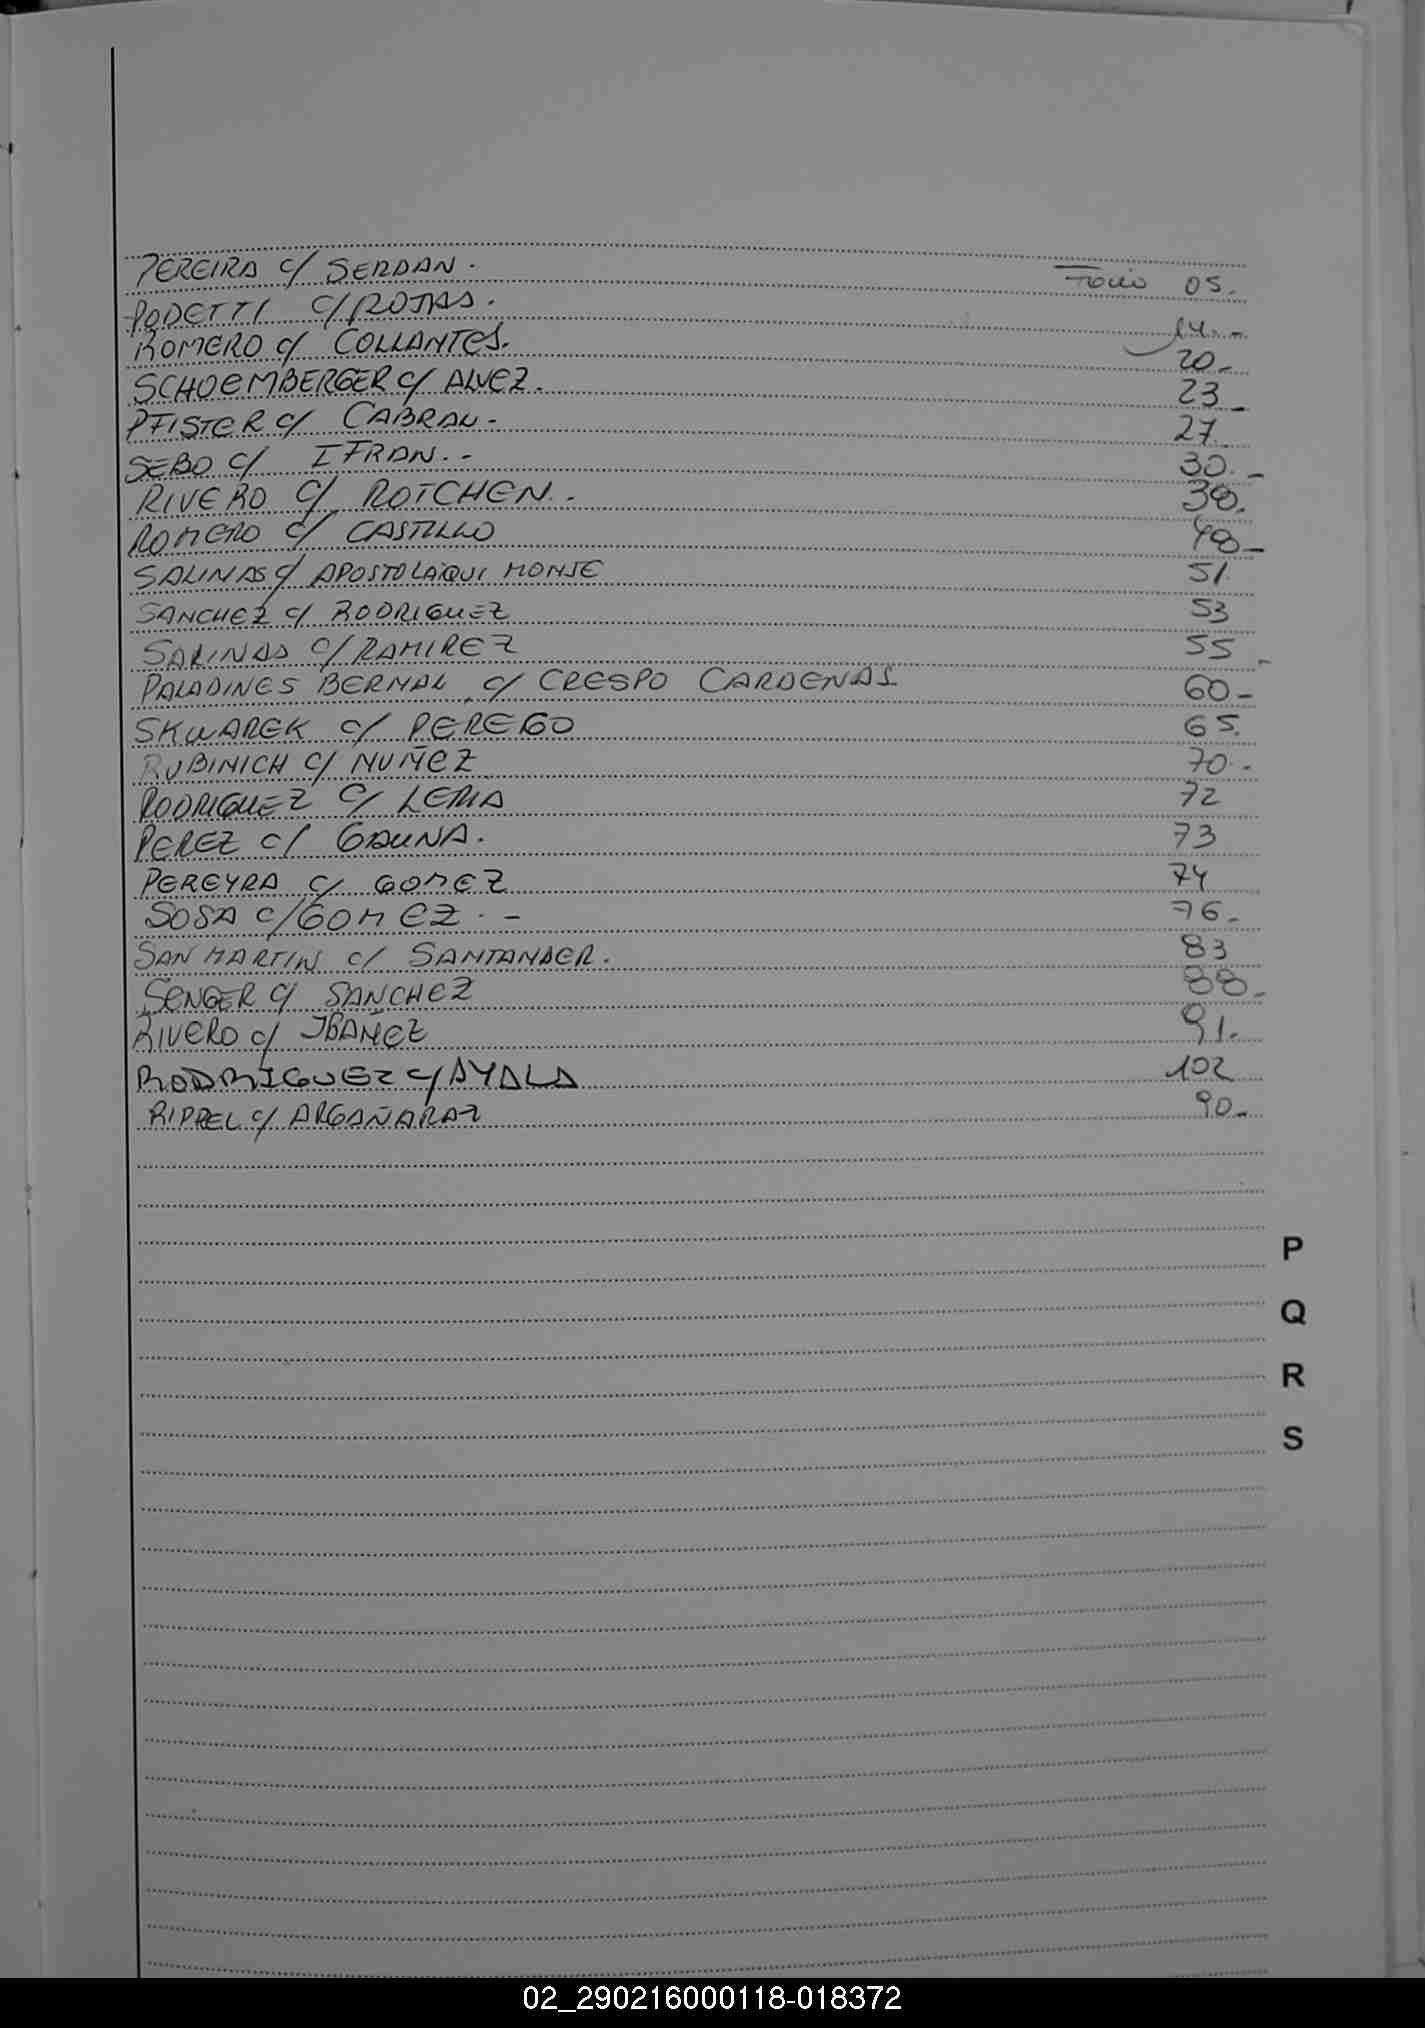 PEREIRA c/ SERDAN. Folio 05.
PODETTI c/ ROJAS. 14
ROMERO c/ COLLANTES. 20-
SCHOEMBERGER c/ ALVEZ. 23-
PFISTER c/ CABRAL- 27.
SEBO c/ IFRAN.- 30.-
RIVERO c/ ROTCHEN.- 38.
ROMERO c/ CASTILLO 48-
SALINAS c/ APOSTOLAQUI MONJE 51
SANCHEZ c/ RODRIGUEZ 53
SALINAS c/ RAMIREZ 55-
PALADINES BERNAL c/ CRESPO CARDENAS 60-
SKWAREK c/ PEREGO 65.
RUBINICH c/ NUÑEZ 70.-
RODRIGUEZ c/ LERMA 72
PEREZ c/ GAUNA. 73
PEREYRA c/ GOMEZ 74
SOSA c/ GOMEZ.- 76-
SAN MARTIN c/ SANTANDER. 83
SENGER c/ SANCHEZ 88-
RIVERO c/ IBAÑEZ 91.
RODRIGUEZ c/ AYALA 102
RIPPEL c/ ARGAÑARAZ 90-
P
Q
R
S
02_290216000118-018372